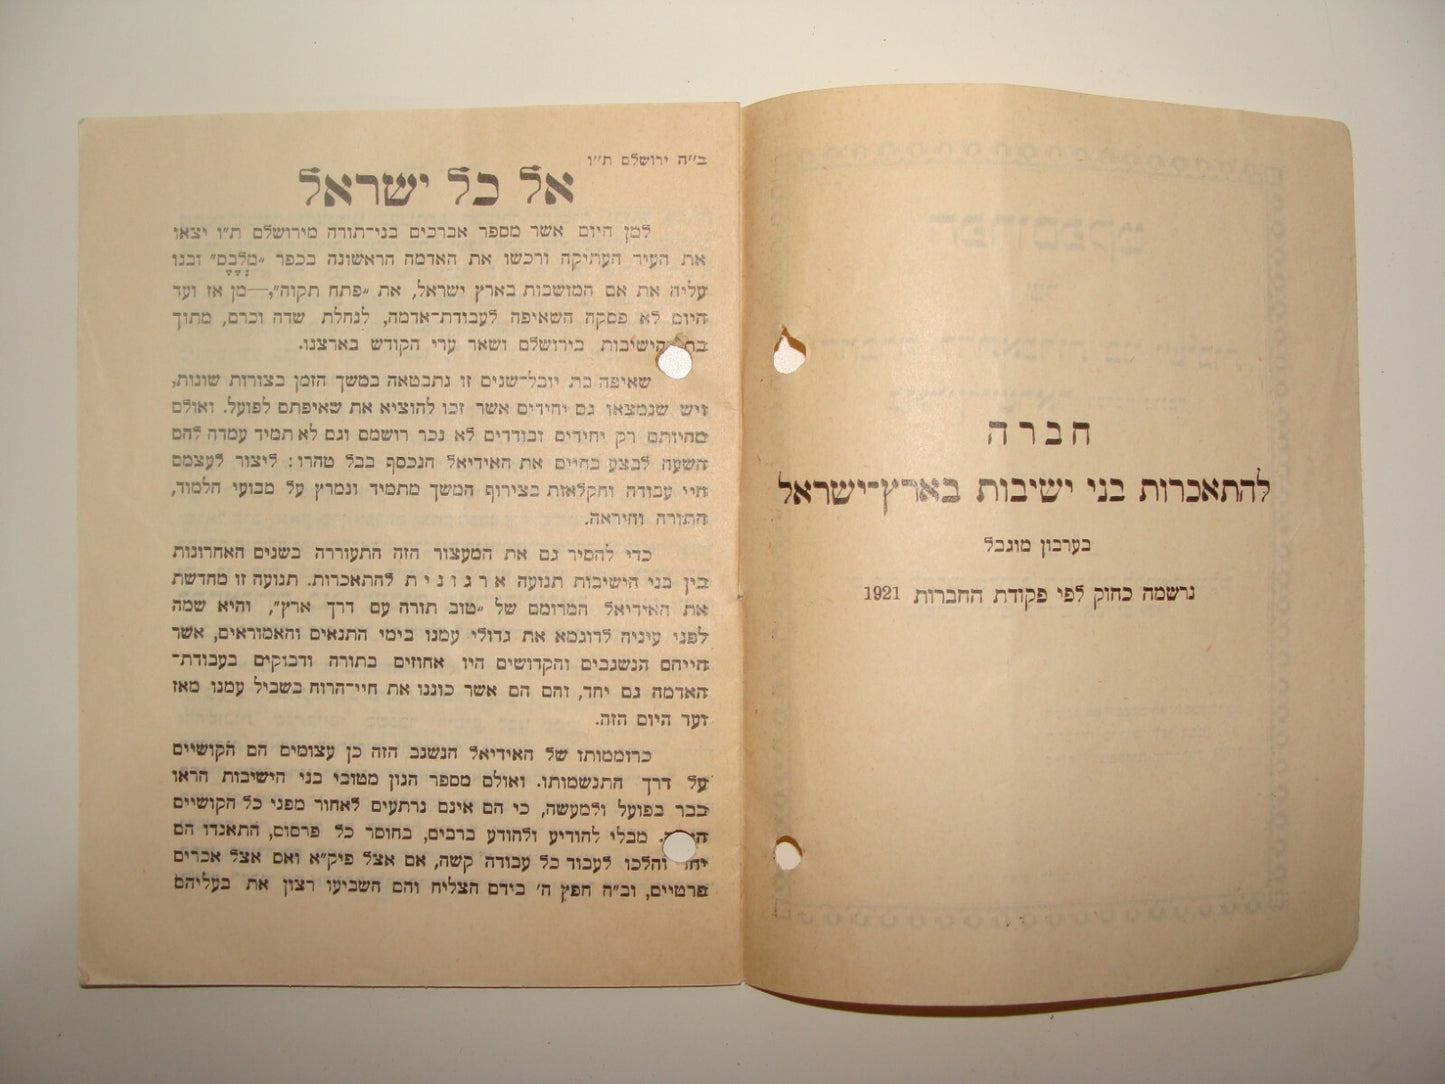 חברה
להתאכרות בני ישיבות בארץ־ישראל
בערבון מוגבל
נרשמה כחוק לפי פקודת החברות 1921
ב״ה ירושלם ת״ו
אל כל ישראל
למן היום אשר מספר אברכים בני־תורה מירושלם ת״ו יצאו
את העיר העתיקה ורכשו את האדמה הראשונה בכפר „מלבס״ ובנו
עליה את אם המושבות בארץ ישראל, את „פתח תקוה״,—מן אז ועד
היום לא פסקה השאיפה לעבודת־אדמה, לנחלת שדה וכרם, מתוך
הישיבות בירושלם ושאר ערי הקודש בארצנו.
שאיפה בת יובל־שנים זו נתבטאה במשך הזמן בצורות שונות,
ויש שנמצאו גם יחידים אשר זכו להוציא את שאיפתם לפועל. ואולם
מהיותם רק יחידים ובודדים לא נכר רושמם וגם לא תמיד עמדה להם
השעה לבצע בחיים את האידיאל הנכסף בכל טהרו: ליצור לעצמם
חיי עבודה וחקלאות בצירוף המשך מתמיד ונמרץ על מבועי הלמוד,
התורה והיראה.
כדי להסיר גם את המעצור הזה התעוררה בשנים האחרונות
בין בני הישיבות תנועה ארגונית להתאכרות. תנועה זו מחדשת
את האידיאל המרומם של „טוב תורה עם דרך ארץ״, והיא שמה
לפני עיניה לדוגמא את גדולי עמנו בימי התנאים והאמוראים, אשר
חייהם הנשגבים והקדושים היו אחוזים בתורה ודבוקים בעבודת־
האדמה גם יחד, והם הם אשר כוננו את חיי־הרוח בשביל עמנו מאז
ועד היום הזה.
כרוממותו של האידיאל הנשגב הזה כן עצומים הם הקושיים
על דרך התגשמותו. ואולם מספר הגון מטובי בני הישיבות הראו
כבר בפועל ולמעשה, כי הם אינם נרתעים לאחור מפני כל הקושיים
מבלי להודיע ולהודע ברבים, בחוסר כל פרסום, התאגדו הם
יחד והלכו לעבוד כל עבודה קשה, אם אצל פיק״א ואם אצל אכרים
פרטיים, וב״ה חפץ ה׳ בידם הצליח והם השביעו רצון את בעליהם